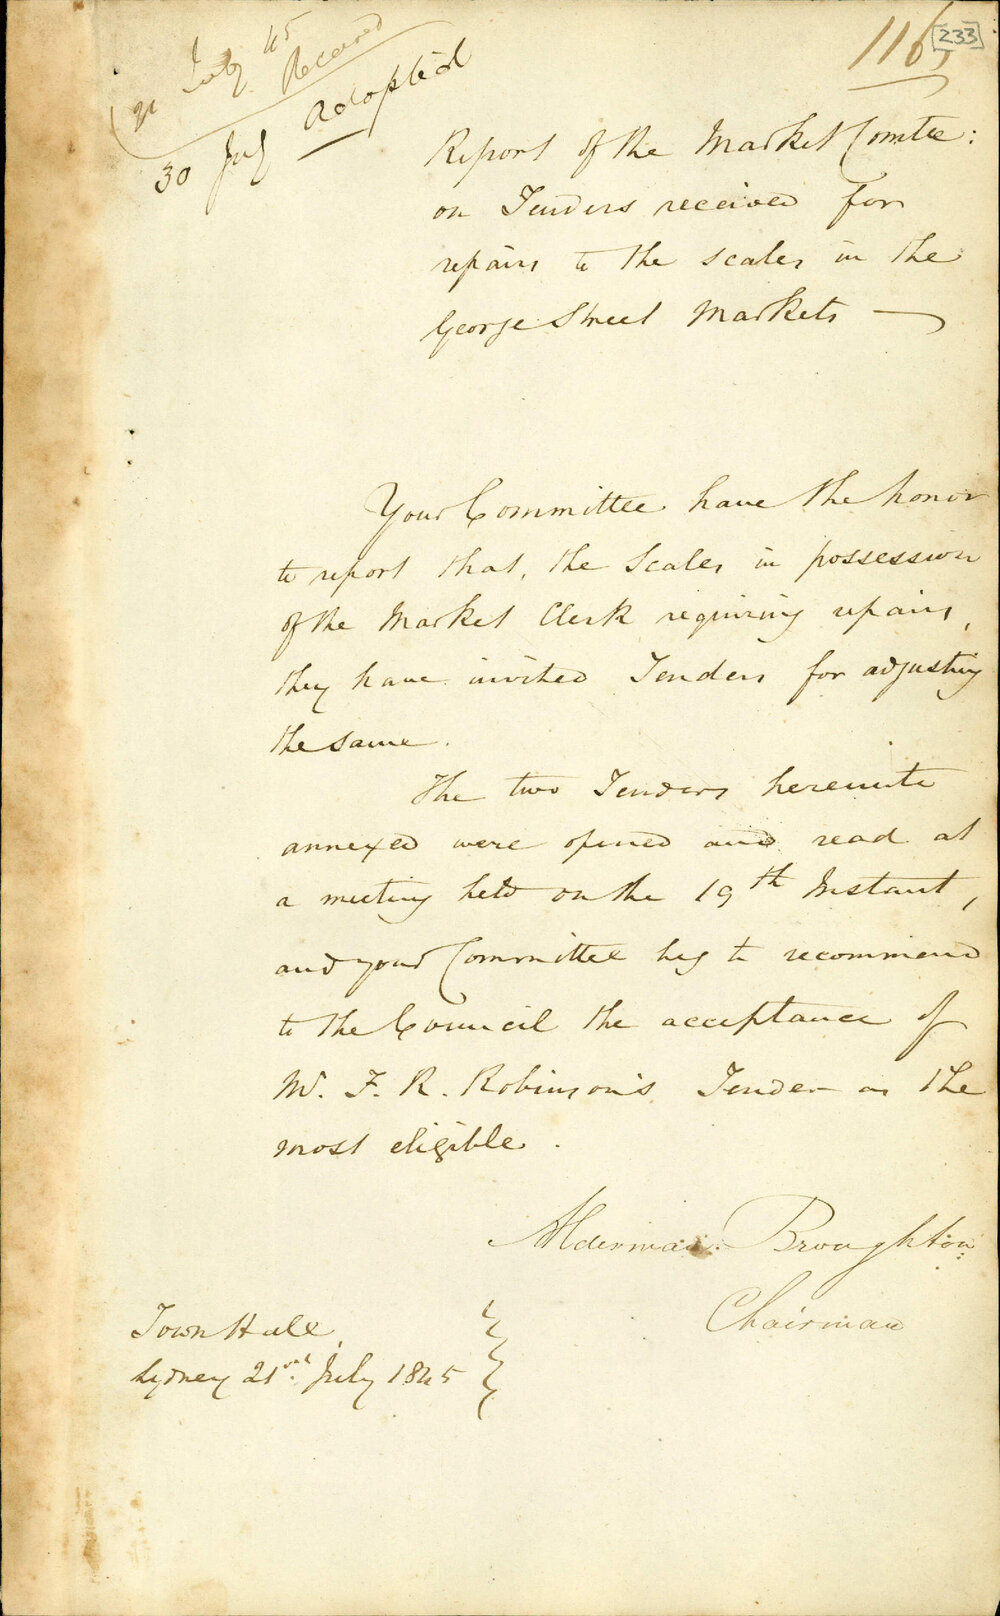 21 July 45
Received
30 July Adopted
116
233
Report of the Market Comtee:
on Tenders received for
repairs to the scales in the
George Street Markets —
Your Committee have the honor
to report that, the Scales in possession
of the Market Clerk requiring repairs,
they have invited Tenders for adjusting
the same.
The two Tenders herewith
annexed were opened and read at
a meeting held on the 19th Instant,
and your Committee beg to recommend
to the Council the acceptance of
Mr. F. R. Robinson's Tender as the
most eligible.
Alderman Broughton
Chairman
Town Hall,
Sydney 21st July 1845